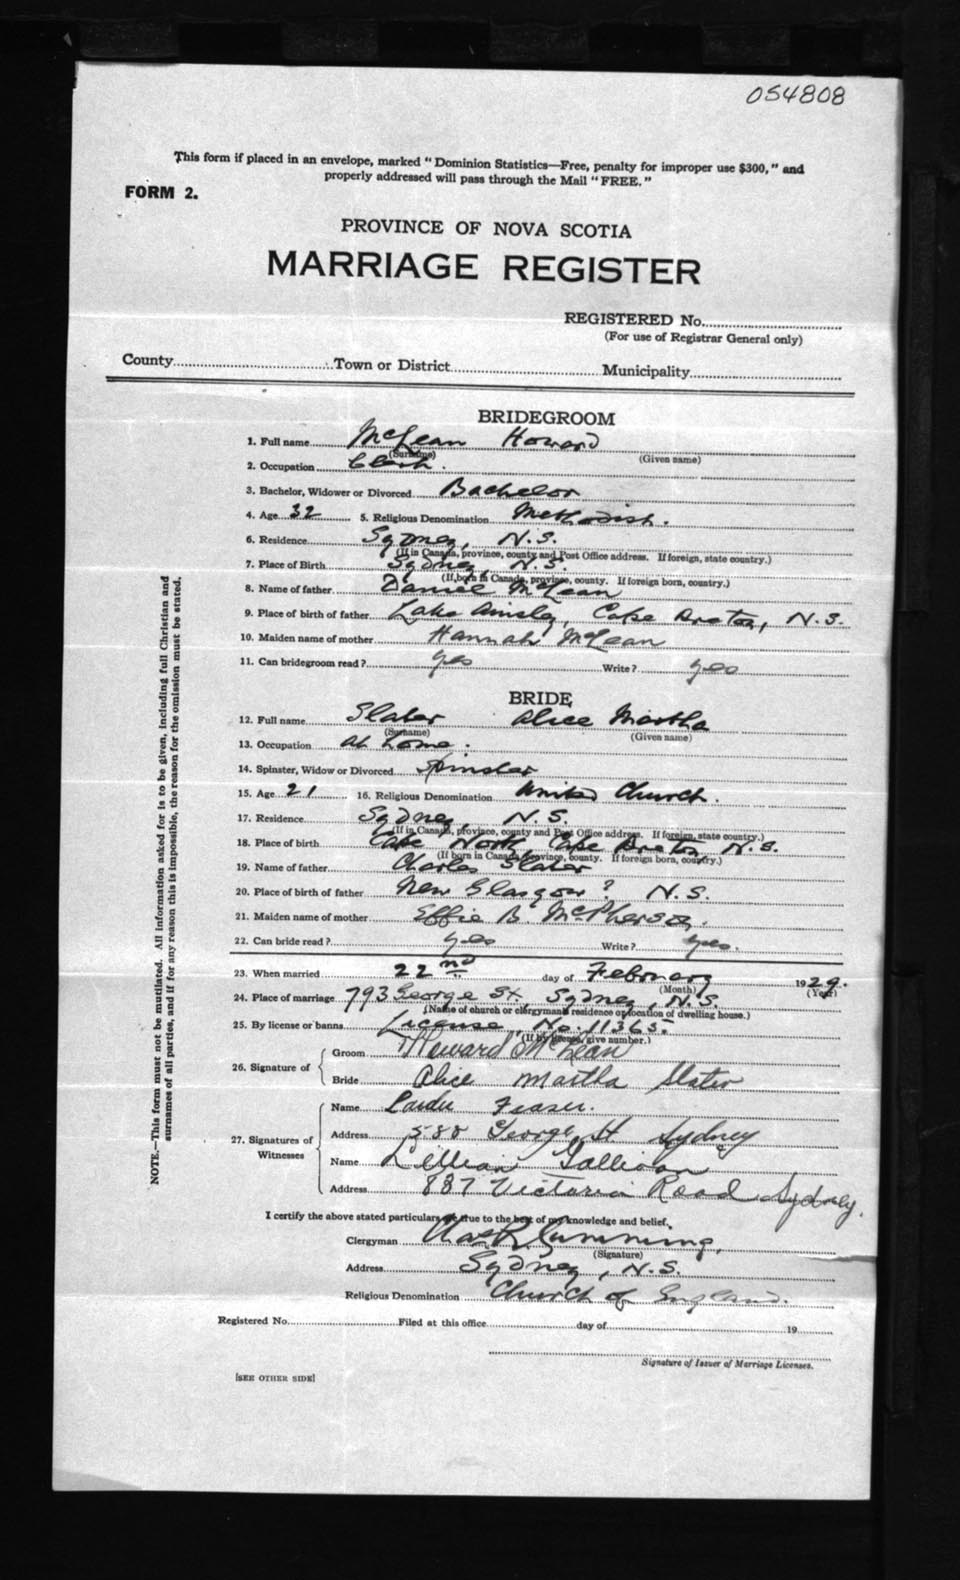 054808
This form if placed in an envelope, marked "Dominion Statistics—Free, penalty for improper use $300," and
properly addressed will pass through the Mail "FREE."
FORM 2.
PROVINCE OF NOVA SCOTIA
MARRIAGE REGISTER
REGISTERED No.
(For use of Registrar General only)
County Town or District Municipality
BRIDEGROOM
1. Full name McLean Howard
(Surname) (Given name)
2. Occupation Clerk.
3. Bachelor, Widower or Divorced Bachelor
4. Age 32 5. Religious Denomination Methodist.
6. Residence Sydney, N.S.
(If in Canada, province, county and Post Office address. If foreign, state country.)
7. Place of Birth Sydney, N.S.
(If born in Canada, province, county. If foreign born, county.)
8. Name of father Daniel McLean
9. Place of birth of father Lake Ainsley, Cape Breton, N.S.
10. Maiden name of mother Hannah McLean
11. Can bridegroom read? yes Write? yes
BRIDE
12. Full name Slater Alice Martha
(Surname) (Given name)
13. Occupation At home.
14. Spinster, Widow or Divorced Spinster
15. Age 21 16. Religious Denomination United Church.
17. Residence Sydney, N.S.
(If in Canada, province, county and Post Office address. If foreign, state country.)
18. Place of birth Cape North, Cape Breton N.S.
(If born in Canada, province, county. If foreign born, country.)
19. Name of father Charles Slater
20. Place of birth of father New Glasgow? N.S.
21. Maiden name of mother Effie B. McPherson.
22. Can bride read? yes Write? yes.
23. When married 22nd day of February 1929.
(Month) (Year)
24. Place of marriage 793 George St., Sydney, N.S.
(Name of church or clergyman's residence or location of dwelling house.)
25. By license or banns License, No. 11365.
(If by license, give number.)
26. Signature of Groom Howard McLean
Bride Alice Martha Slater
27. Signatures of Witnesses
Name Fraser.
Address 588 George St Sydney
Name Lillian Gallivan
Address 887 Victoria Road Sydney.
I certify the above stated particulars are true to the best of my knowledge and belief.
Clergyman Chas R. Cumming,
(Signature)
Address Sydney, N.S.
Religious Denomination Church of England.
Registered No. Filed at this office day of 19
Signature of Issuer of Marriage Licenses.
[SEE OTHER SIDE]
NOTE.—This form must not be mutilated. All information asked for is to be given, including full Christian and
surnames of all parties, and if for any reason this is impossible, the reason for the omission must be stated.